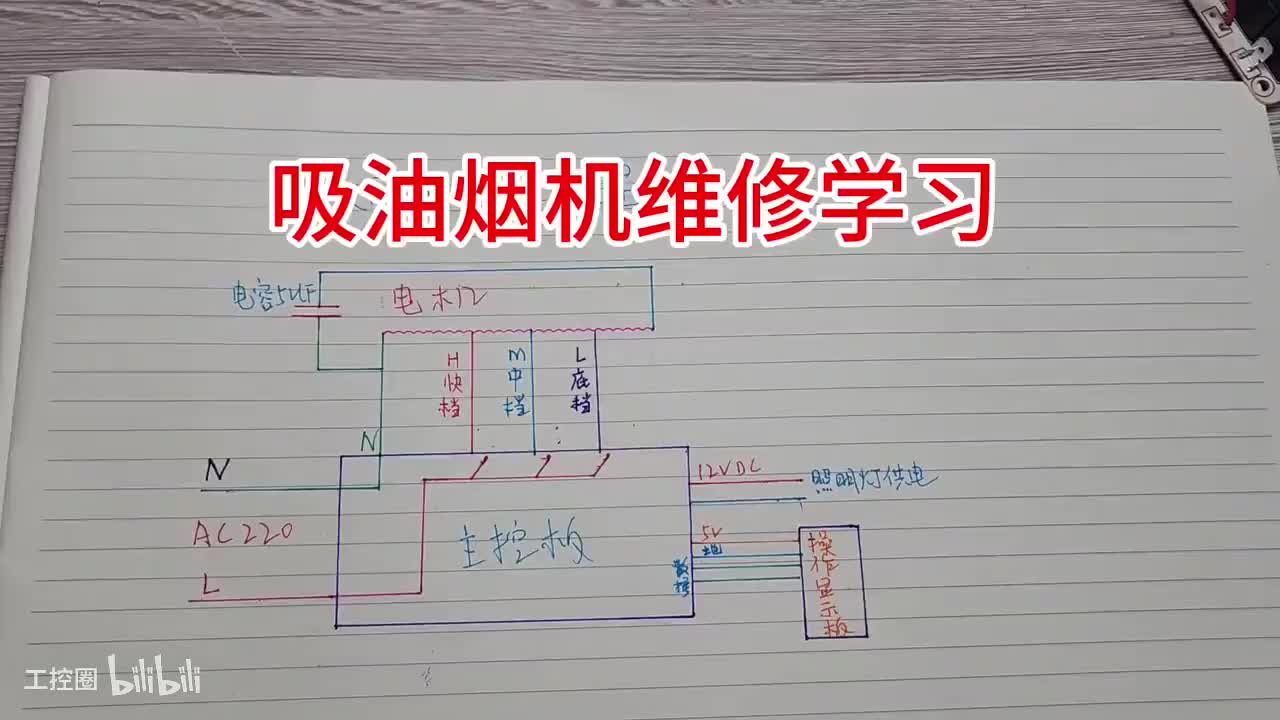 吸油烟机维修学习
电容5UF
电机
H快档
M中档
L底档
N
N
AC220
L
主控板
12VDC
照明灯供电
5V
地
数据
操作显示板
工控圈 bilibili